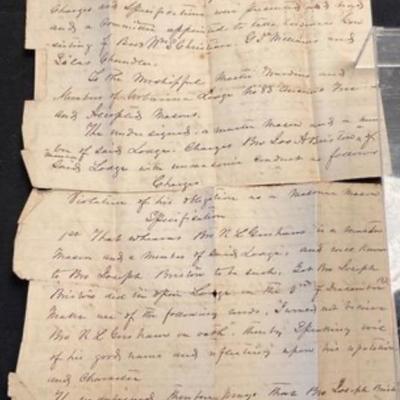 Charges and Specifications were presented and read
and a Committee appointed to take evidence Con
sisting of Bros Wm S Christian. G. T. Williams and
Silas Chandler.
To the Worshipful Master Wardens and
Members of Urbanna Lodge No 83 Ancient Free
and Accepted Masons.
The undersigned, a master Mason and a mem
ber of said Lodge. Charges Bro Jos H Bristow a
member of
Said Lodge with unmasonic conduct as follows
Charges
Violation of his obligation as a Master Mason
Specification
1st That whereas Bro R. L. is a master
Mason and a member of said Lodge, and was known
to Bro Joseph Bristow to be such, yet Bro Joseph
Bristow did in open Lodge on the of December
make use of the following words, I would not believe
Bro R L on oath, thereby Speaking evil
of his good name and reflecting upon his reputation
and Character
The undersigned therefore prays that Bro Joseph